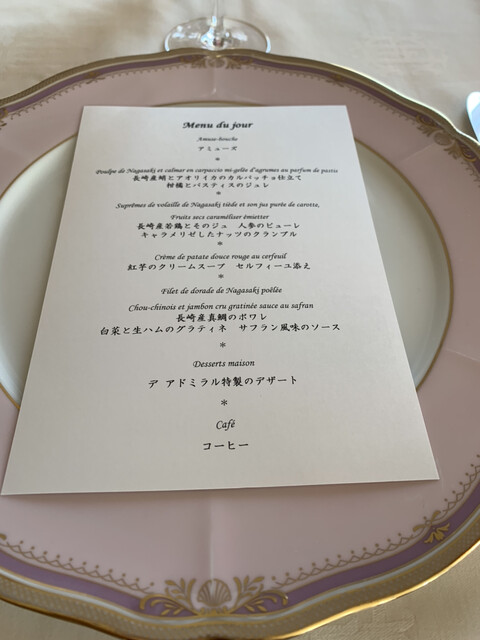 Menu du jour
Amuse-bouche
アミューズ
*
Poulpe de Nagasaki et calmer en carpaccio mi-gelée d'agrumes au parfum de pastis
長崎産蛸とアオリイカのカルパッチョ仕立て
柑橘とパスティスのジュレ
*
Suprêmes de volaille de Nagasaki tiède et son jus purée de carotte,
Fruits secs caraméliser émietter
長崎産若鶏とそのジュ 人参のピューレ
キャラメリゼしたナッツのクランブル
*
Crème de patate douce rouge au cerfeuil
紅芋のクリームスープ セルフィーユ添え
*
Filet de dorade de Nagasaki poêlée
Chou-chinois et jambon cru gratinée sauce au safran
長崎産真鯛のポワレ
白菜と生ハムのグラティネ サフラン風味のソース
*
Desserts maison
デ アドミラル特製のデザート
*
Café
コーヒー